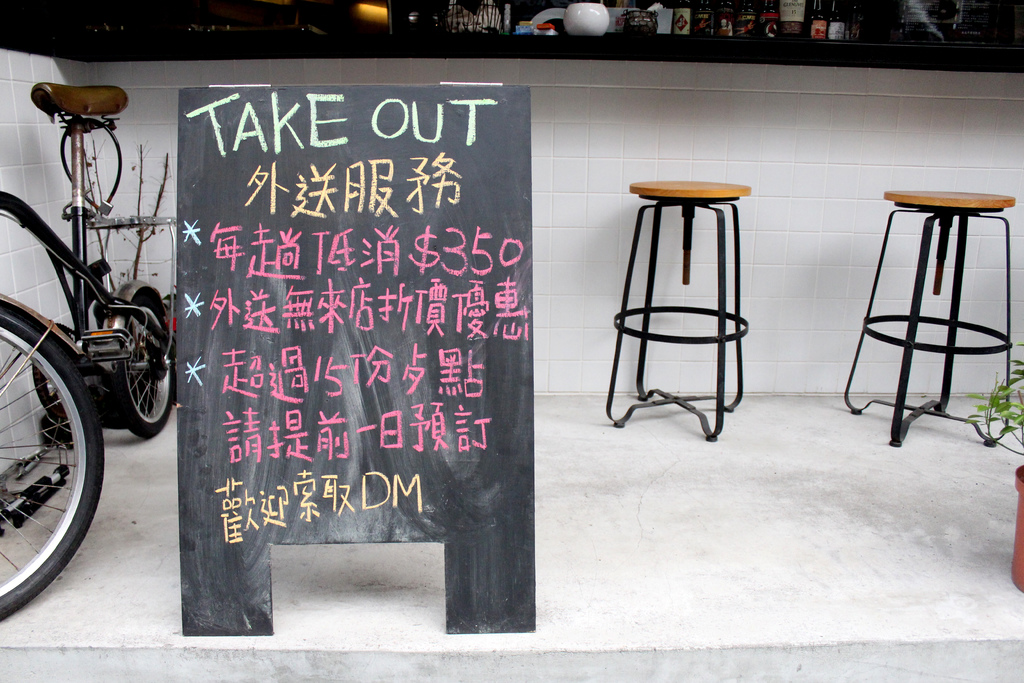 TAKE OUT
外送服務
* 每趟低消$350
* 外送無來店折價優惠
* 超過15份歺點
請提前一日預訂
歡迎索取DM